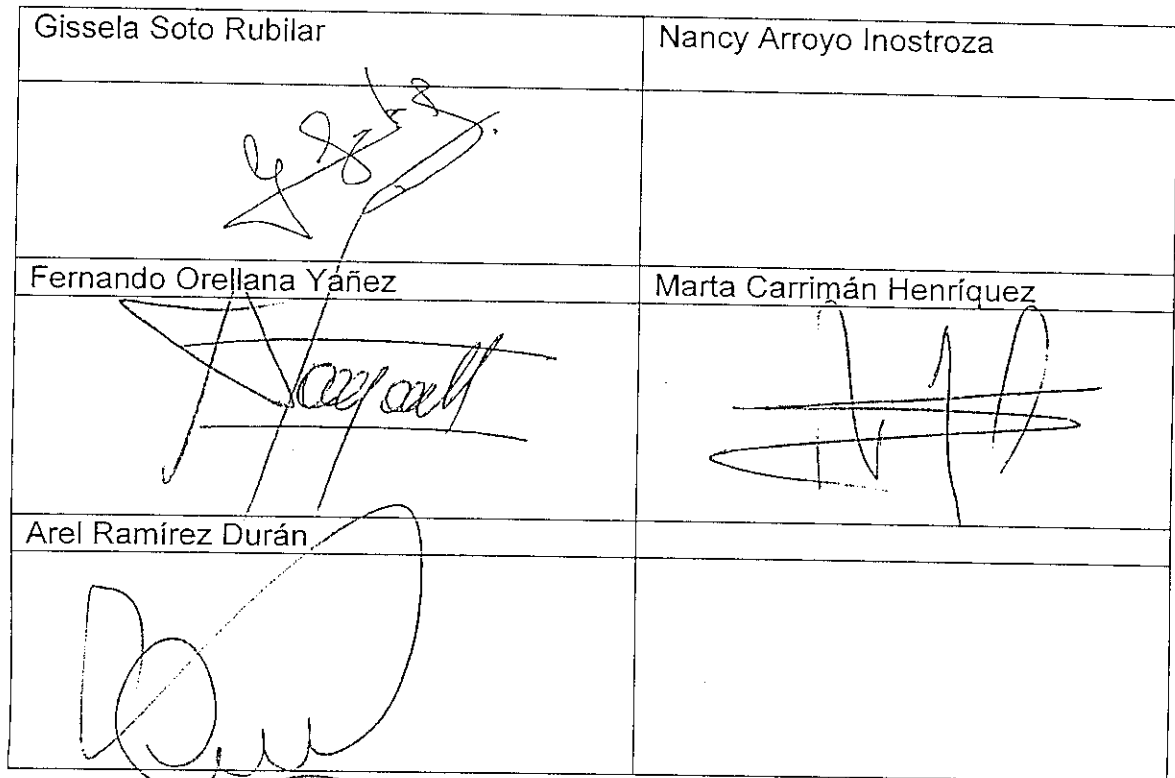 Gissela Soto Rubilar
Nancy Arroyo Inostroza
Fernando Orellana Yáñez
Marta Carrimán Henríquez
Arel Ramírez Durán